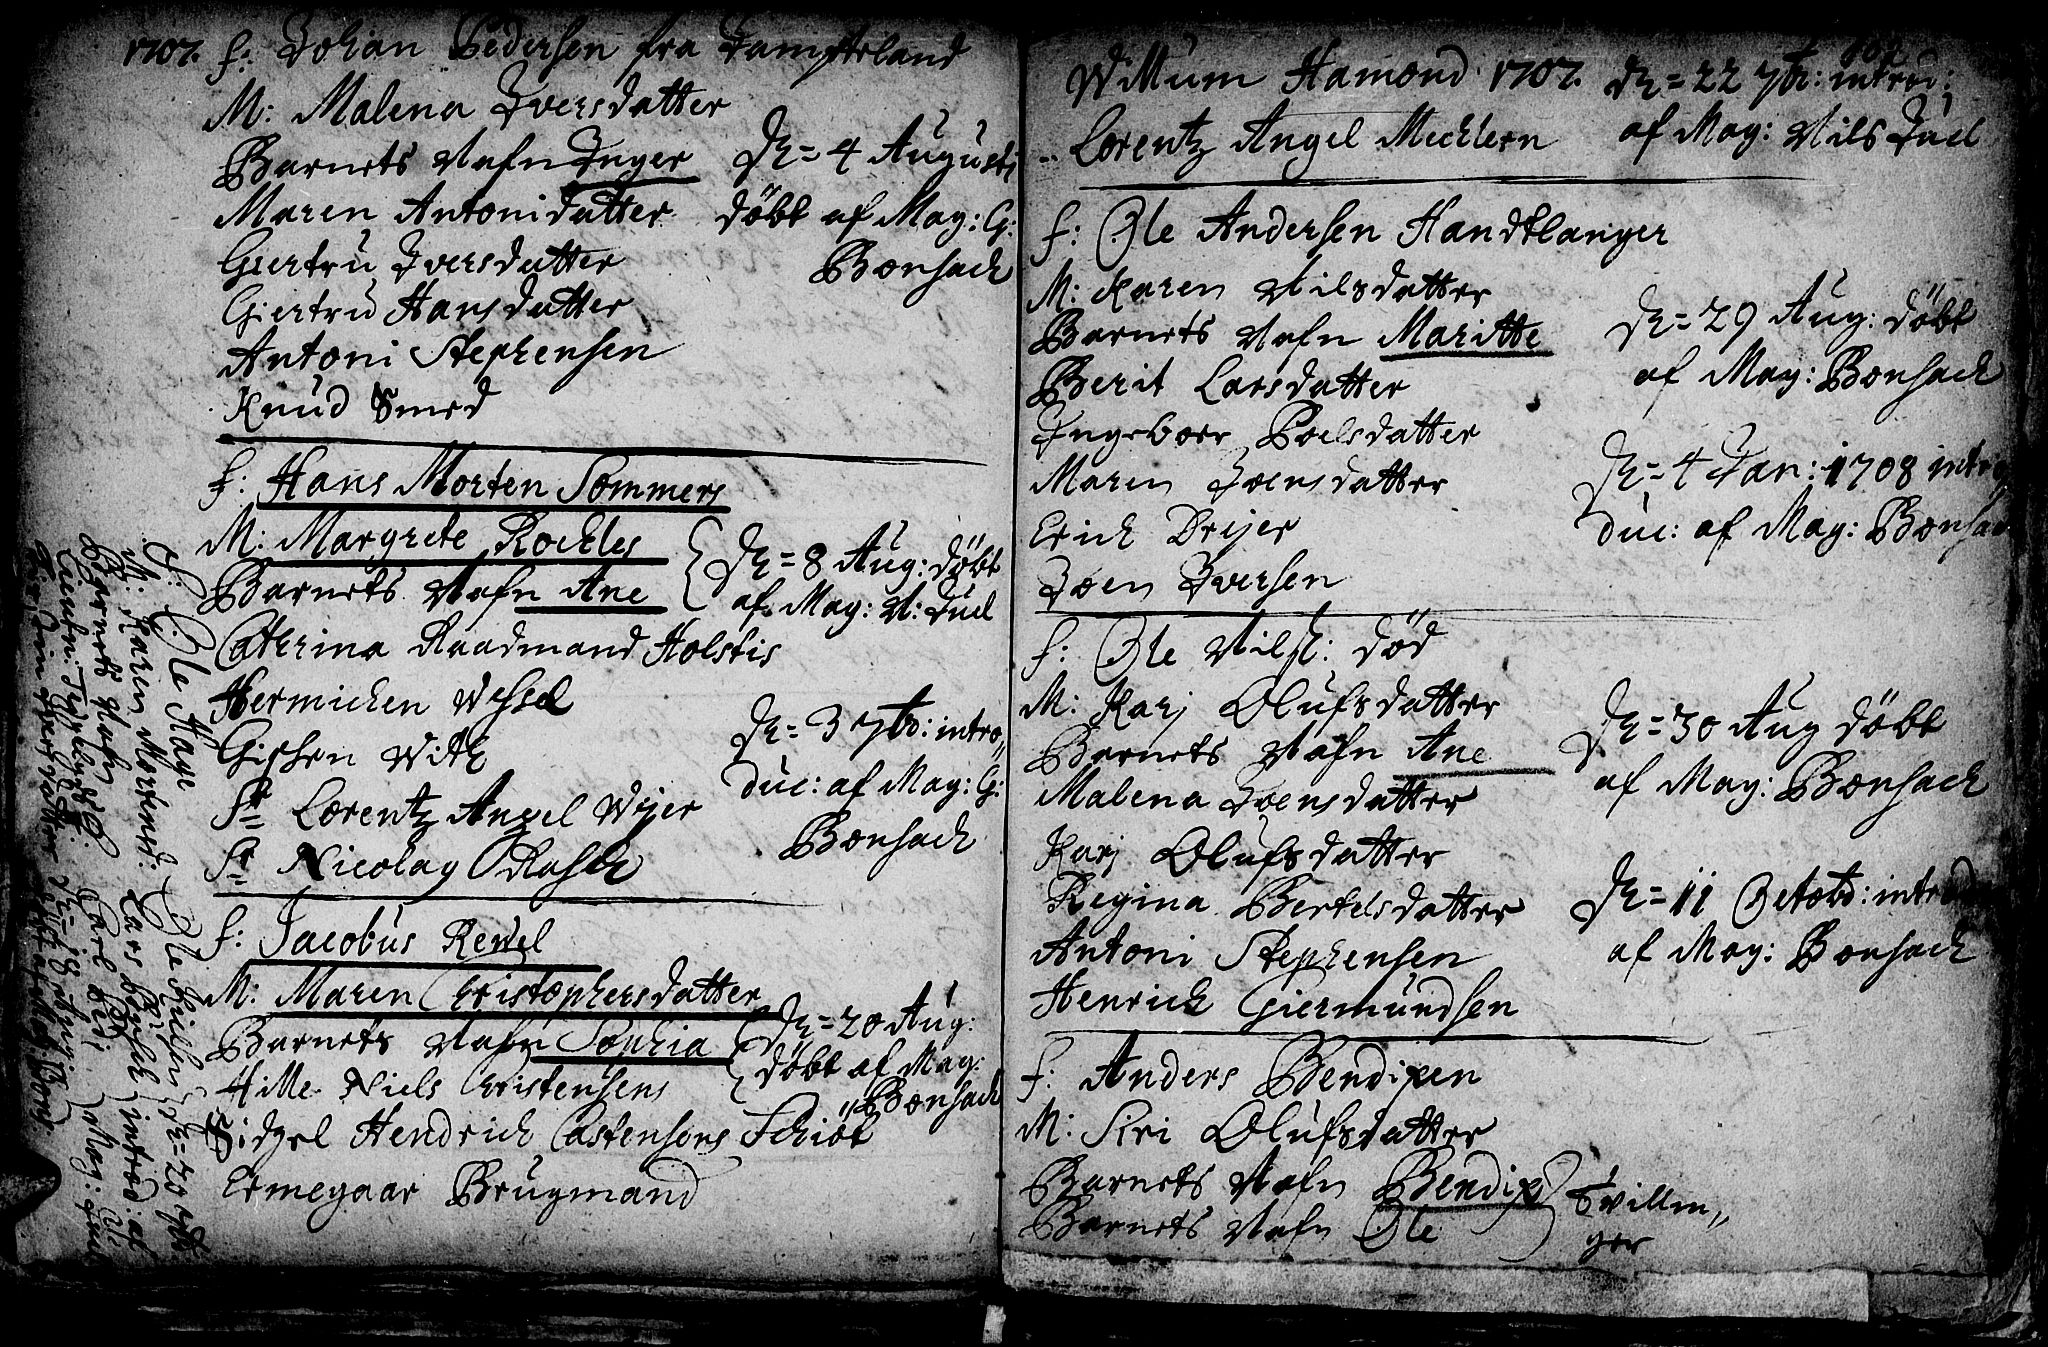 1707. f: Johan Pedersen fra Jampteland
M: Malena Iversdatter
Barnets Nafn Inger
Maren Antonidatter
Giertru Iversdatter
Giertru Hansdatter
Antoni Stephensen
Knud Smed
De = 4 Augusti
döbt af Mag: G:
Bonsach
f: Hans Morten Sommers
M: Margrete Rochles
Barnets Nafn Ane
Catrina Raadmand Holstis
Hermichen Wessel
Gishen Witk
Sr Lorentz Angel Wijer
Sr Nicolay Rasch
De = 8 Aug: döbt
af Mag: N: Juel
De = 3 7br: intro„
duc: af Mag: G:
Bonsach
f: Jacobus Rewel
M: Maren Christophersdatter
Barnets Nafn Sophia
Hille Niels Christensens
Sidzel Hendrich Castensens Schiöt
Ermegaar Brugmand
De = 20 Aug:
döbt af Mag:
Bonsach
f: Ole Hage
M: Karen Mortensd:
Barnets Nafn
Willum Hamond 1707.
Lorentz Angel Mechlern
De = 22 7br: introd:
af Mag: Nils Juel
f: Ole Andersen Handtlanger
M: Karen Nilsdatter
Barnets Nafn Maritte
Berit Larsdatter
Ingeborr Poelsdatter
Maren Joensdatter
Erich Drejer
Joen Iversen
De = 29 Aug: döbt
af Mag: Bonsach
De = 4 Jan: 1708 intro
duc: af Mag: Bonsach
f: Ole Nils: död
M: Karj Olufsdatter
Barnets Nafn Ane
Malena Joensdatter
Karj Olufsdatter
Regina Bertelsdatter
Antoni Stephensen
Henrich Giermundsen
De = 30 Aug döbt
af Mag: Bonsach
De = 11 Octobr: introd
af Mag: Bonsach
f: Anders Bendixen
M: Siri Olufsdatter
Barnets Nafn Bendix
Barnets Nafn Ole
Tvillin„
ger